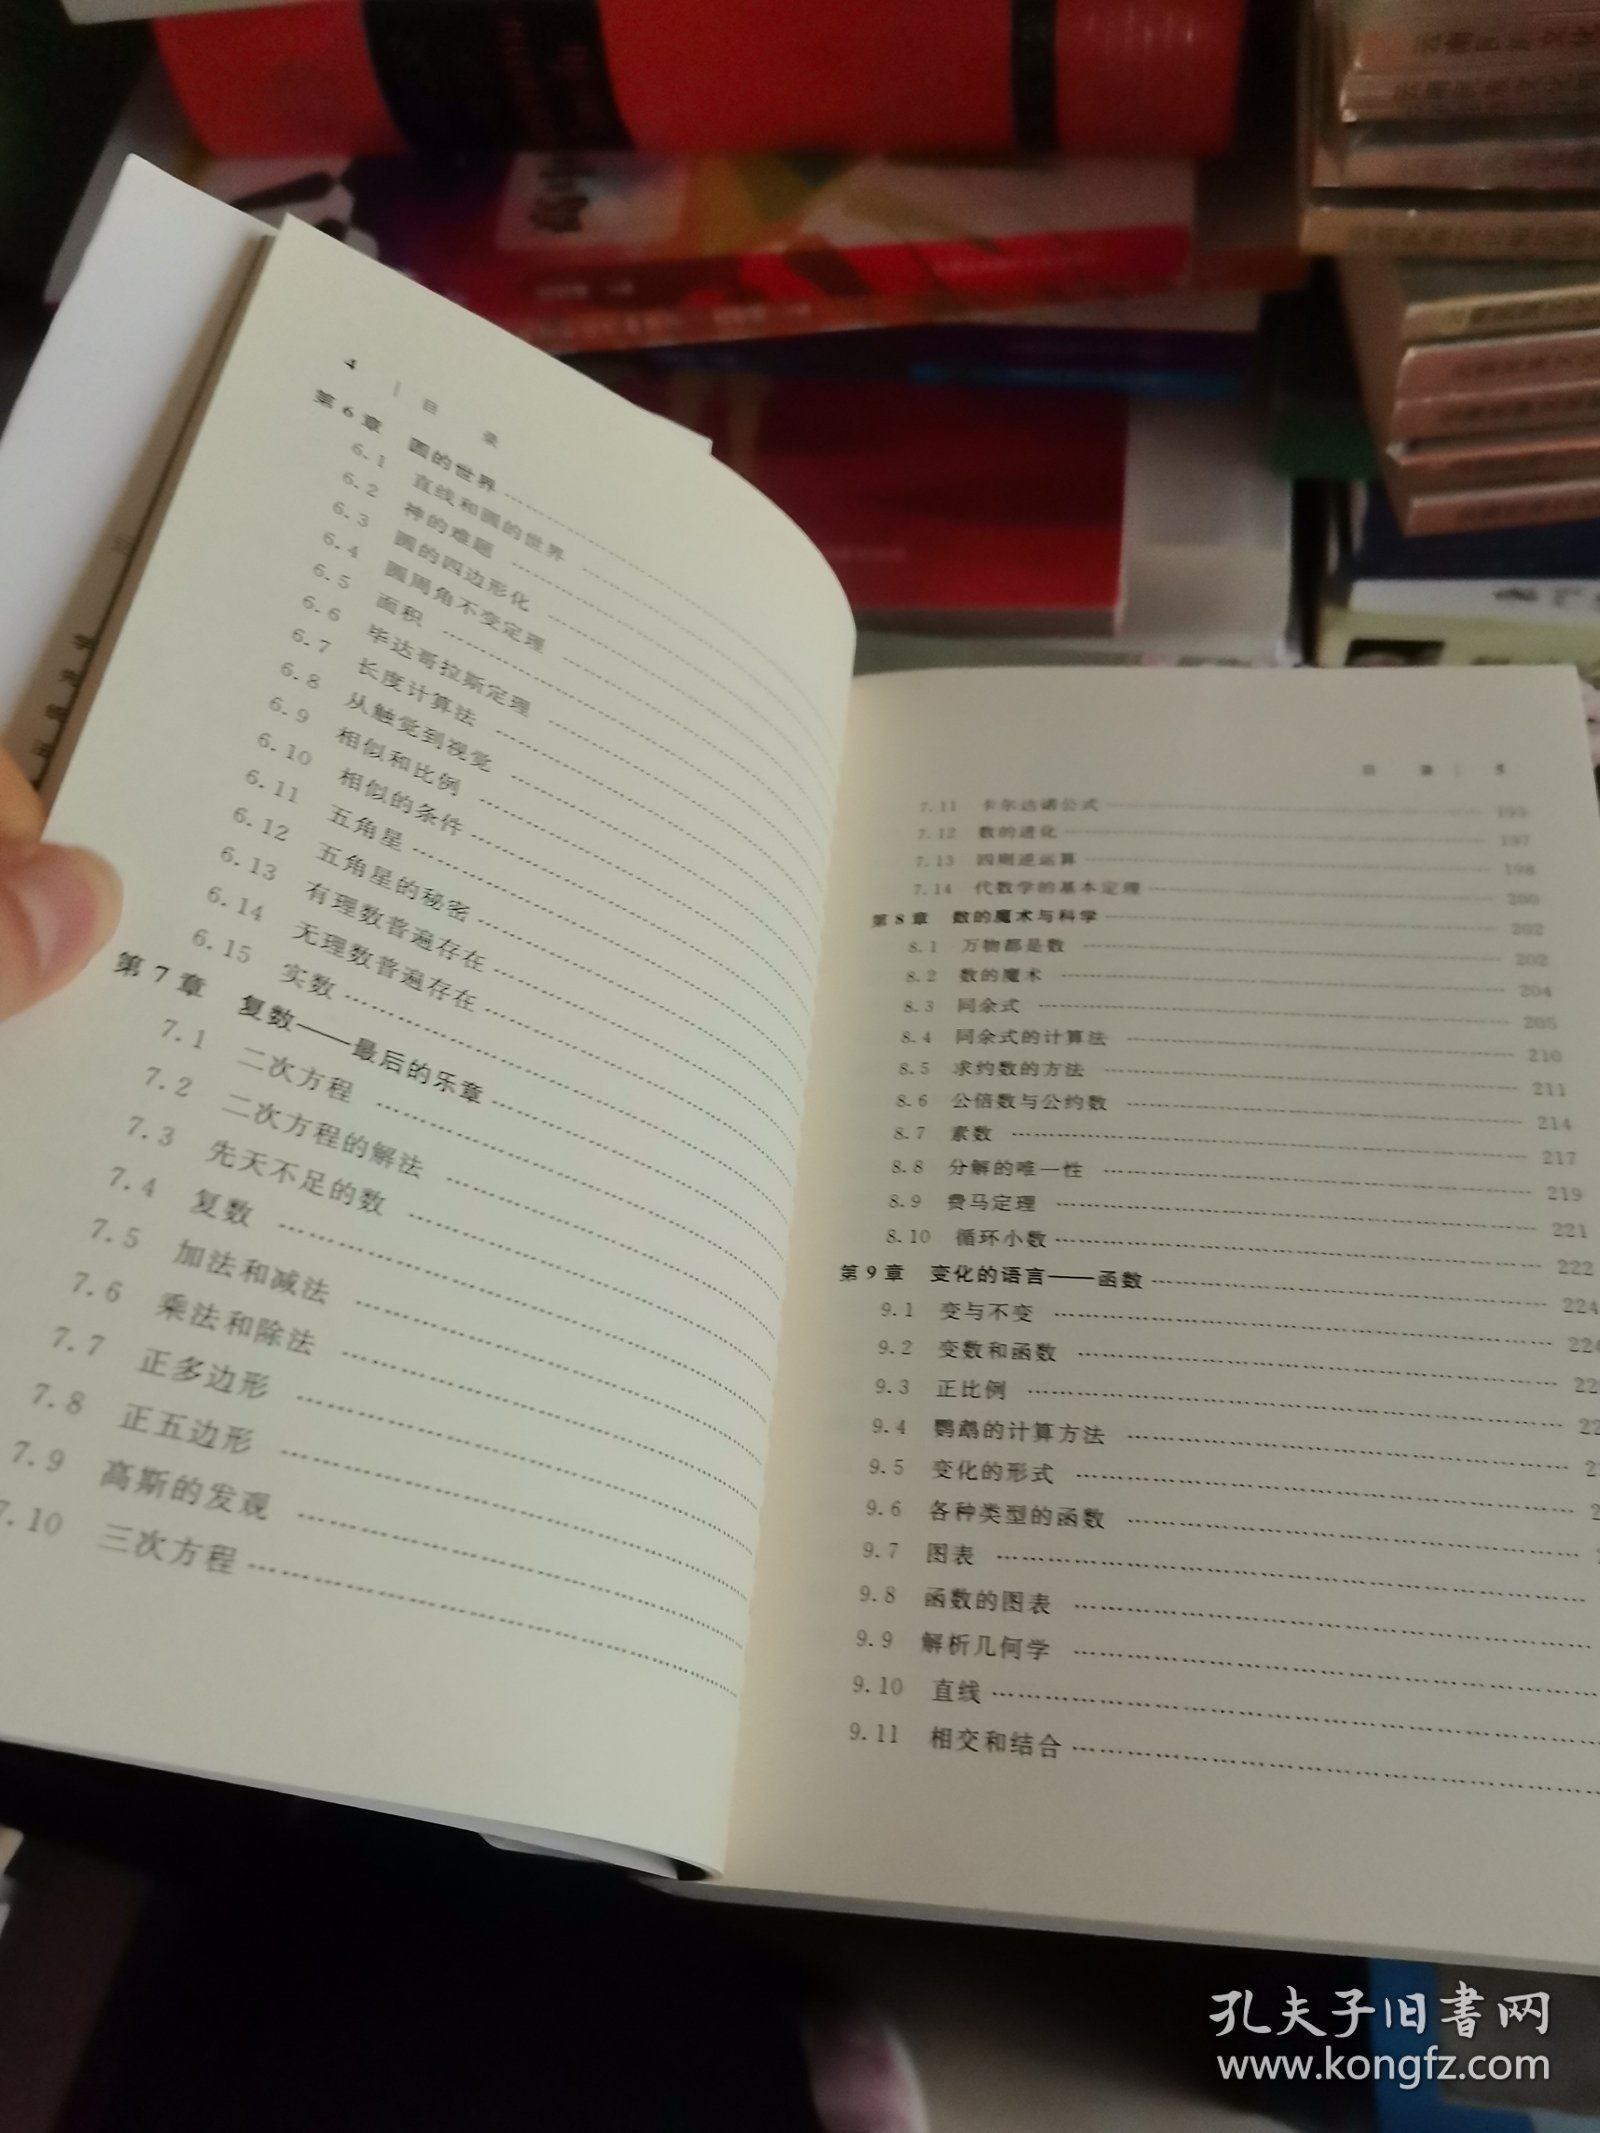 4 目 录
第6章 圆的世界
6.1 直线和圆的世界
6.2 神的难题
6.3 圆的四边形化
6.4 圆周角不变定理
6.5 面积
6.6 毕达哥拉斯定理
6.7 长度计算法
6.8 从触觉到视觉
6.9 相似和比例
6.10 相似的条件
6.11 五角星
6.12 五角星的秘密
6.13 有理数普遍存在
6.14 无理数普遍存在
6.15 实数
第7章 复数——最后的乐章
7.1 二次方程
7.2 二次方程的解法
7.3 先天不足的数
7.4 复数
7.5 加法和减法
7.6 乘法和除法
7.7 正多边形
7.8 正五边形
7.9 高斯的发现
7.10 三次方程
目 录 5
7.11 卡尔达诺公式 195
7.12 数的进化 197
7.13 四则逆运算 198
7.14 代数学的基本定理 200
第8章 数的魔术与科学 202
8.1 万物都是数 202
8.2 数的魔术 204
8.3 同余式 205
8.4 同余式的计算法 210
8.5 求约数的方法 211
8.6 公倍数与公约数 214
8.7 素数 217
8.8 分解的唯一性 219
8.9 费马定理 221
8.10 循环小数 222
第9章 变化的语言——函数 224
9.1 变与不变 224
9.2 变数和函数
9.3 正比例
9.4 鹦鹉的计算方法
9.5 变化的形式
9.6 各种类型的函数
9.7 图表
9.8 函数的图表
9.9 解析几何学
9.10 直线
9.11 相交和结合
孔夫子旧书网
www.kongfz.com